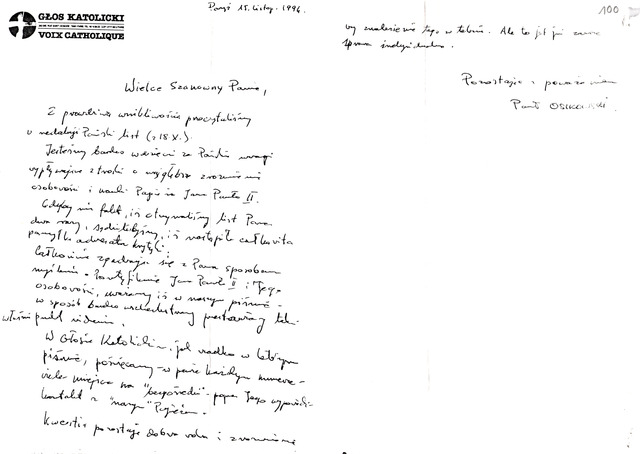 GŁOS KATOLICKI
VOIX CATHOLIQUE
Paryż 15. Listop. 1996.
Wielce Szanowny Panie,
Z prawdziwą wnikliwością przeczytaliśmy
w redakcji Pański list (z 18.X.).
Jesteśmy bardzo wdzięczni za Pańskie uwagi
wypływające z troski o wgłębsze zrozumienie
osobowości i nauki Papieża Jana Pawła II.
Gdyby nie fakt, iż otrzymaliśmy list Pana
dwa razy, sądzilibyśmy, iż nastąpiła całkowita
pomyłka adresata krytyki.
Całkowicie zgadzając się z Pana sposobem
myślenia o Pontyfikacie Jana Pawła II i Jego
osobowości, uważamy iż w naszym piśmie
w sposób bardzo
właśnie punkt widzenia.
W Głosie Katolickim, jak rzadko w którym
piśmie, poświęcamy w każdym numerze
wiele miejsca na "bezpośredni" poprzez Jego wypowiedzi
kontakt z "naszym" Papieżem.
Kwestią pozostaje dobra wola i zrozumienie
100
by znaleźć tego w tekście. Ale to jest już
sprawa indywidualna.
Pozostaję z poważaniem
Paweł OSIKOWSKI